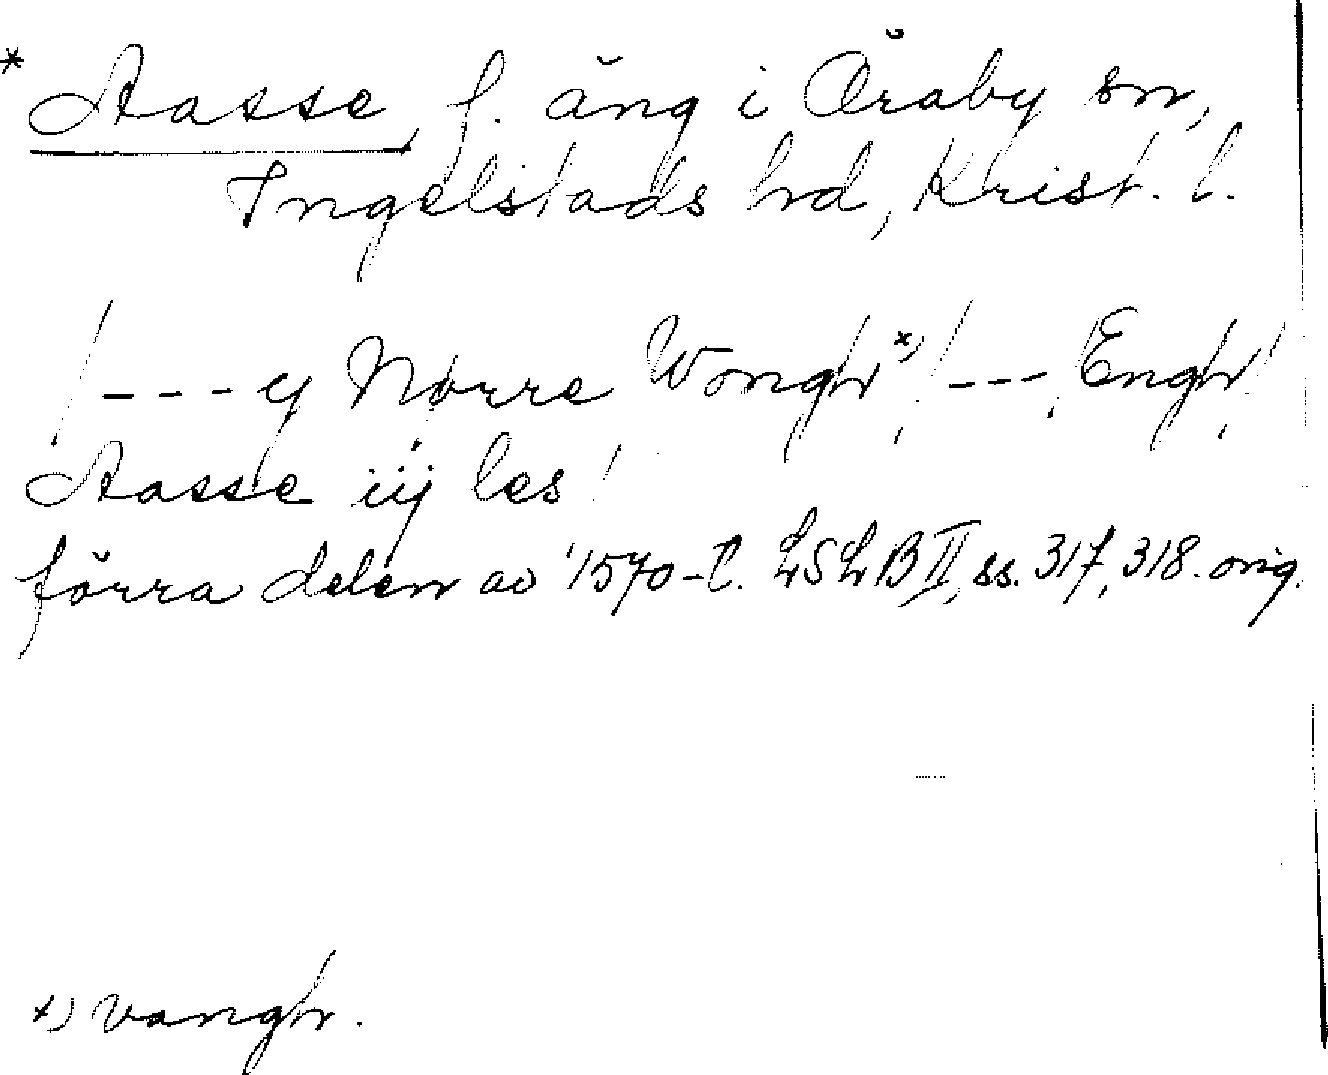 * Aasse, f. äng i Öraby sn,
Ingelstads hd, Krist. l.
/---y Nörre Wongh x) /---, Engh/
Aasse iij les/
förra delen av 1570-t. LSLB II, ss. 317, 318. orig.
x) vangh.